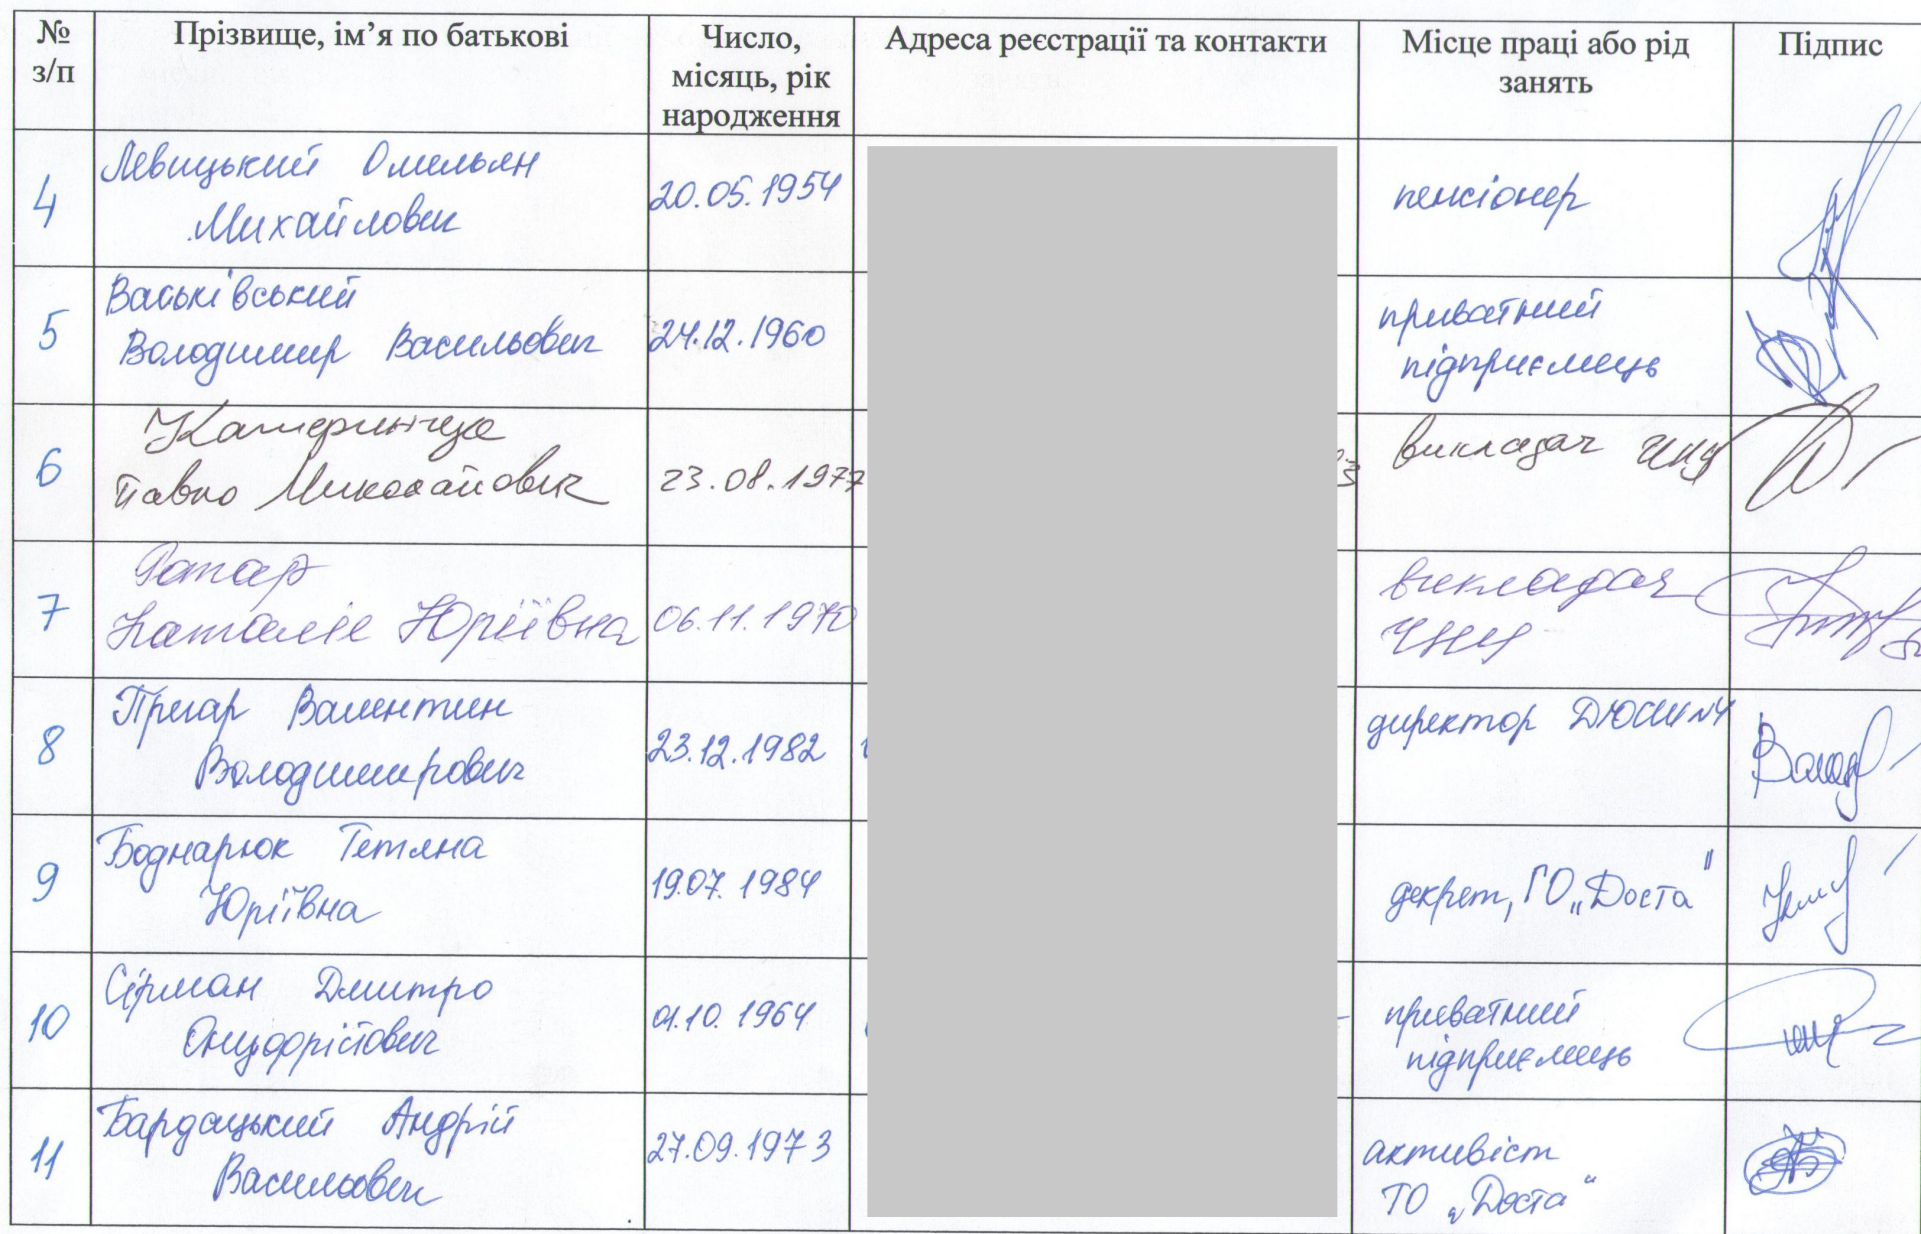 № з/п
Прізвище, ім’я по батькові
Число, місяць, рік народження
Адреса реєстрації та контакти
Місце праці або рід занять
Підпис
4
Левицький Омельян
Михайлович
20.05.1954
пенсіонер
5
Васьківський
Володимир Васильович
24.12.1960
приватний
підприємець
6
Павло Миколайович
23.08.1977
викладач ЧНУ
7
Ротар
Наталія Юріївна
06.11.1970
викладач
ЧНУ
8
Пригар Валентин
Володимирович
23.12.1982
директор ДЮСШ №4
9
Боднарюк Тетяна
Юріївна
19.07.1984
декрет, ГО „Доста"
10
Сірман Дмитро
Онуфрійович
01.10.1964
приватний
підприємець
11
Бардацький Андрій
Васильович
27.09.1973
активіст
ГО „Доста“